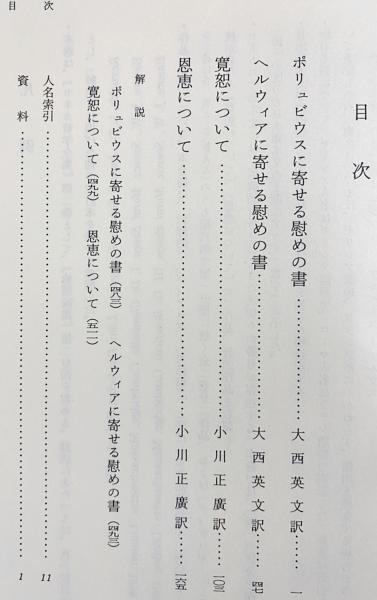 目次
ポリュビウスに寄せる慰めの書……………………大西英文訳……一
ヘルウィアに寄せる慰めの書……………………大西英文訳……四七
寛恕について……………………小川正廣訳……一〇三
恩恵について……………………小川正廣訳……一六五
解説
ポリュビウスに寄せる慰めの書（四八三）　ヘルウィアに寄せる慰めの書（四九三）
寛恕について（四九九）　恩恵について（五一一）
人名索引……………………11
資料……………………1
目次